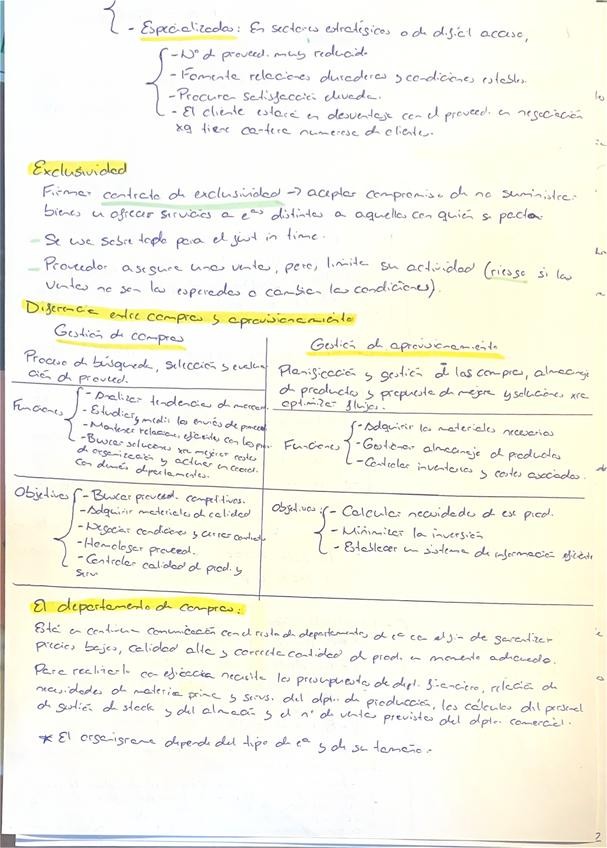 - Especializada: En sectores estratégicos o de difícil acceso,
- Nº d proveed. muy reducido
- Fomenta relaciones duraderas y condiciones estables.
- Procura satisfacción elevada.
- El cliente estará en desventaja con el proveed. en negociación
xq tiene cartera numerosa de clientes.
Exclusividad
Firmar contrato de exclusividad → aceptar compromiso de no suministrar
bienes u ofrecer servicios a eas distintas a aquella con quién se pacta.
- Se usa sobre todo para el just in time.
- Proveedor asegura unas ventas, pero, limita su actividad (riesgo si las
ventas no son las esperadas o cambian las condiciones).
Diferencia entre compras y aprovisionamiento
Gestión de compras
Proceso de búsqueda, selección y evalua
ción de proveed.
Funciones
- Analizar tendencias de mercado.
- Estudiar y medir los envíos de proveed
- Mantener relaciones eficientes con los prov
- Buscar soluciones xra mejorar costes
de organización y actuar en
con demás departamentos.
Objetivos
- Buscar proveed. competitivos.
- Adquirir materiales de calidad
- Negociar condiciones y cerrar contrato
- Homologar proveed.
- Controlar calidad de prod. y
serv.
Gestión de aprovisionamiento
Planificación y gestión d las compras, almacenaje
de productos y propuesta de mejora y soluciones xra
optimizar flujos.
Funciones
- Adquirir los materiales necesarios
- Gestionar almacenaje de productos
- Controlar inventarios y costes asociados.
Objetivos
- Calcular necesidades de ese prod.
- Minimizar la inversión
- Establecer un sistema de información eficiente
El departamento de compras:
Está en continua comunicación con el resto de departamentos d ea con el fin de garantizar
precios bajos, calidad alta y correcta cantidad de prod. en momento adecuado.
Para realizarlo con eficacia necesita los presupuestos de dept. financiero, relación de
necesidades de materia prima y servs. del dpto. de producción, los cálculos del personal
de gestión de stock y del almacén y el nº de ventas previstas del dpto. comercial.
* El organigrama depende del tipo de ea y de su tamaño.
2